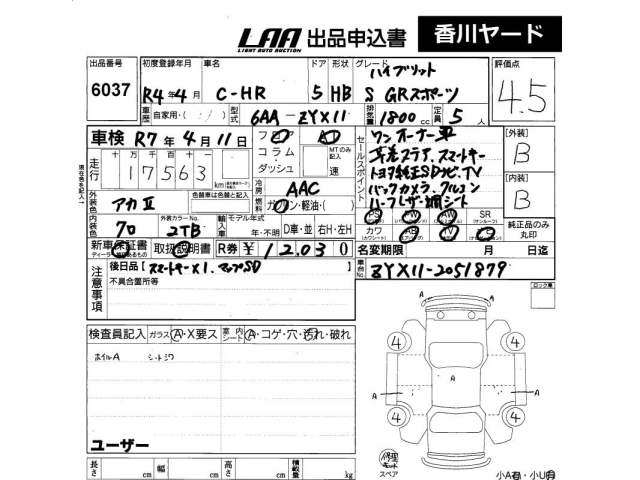 LAA 出品申込書 香川ヤード
LIGHT AUTO AUCTION
出品番号 初度登録年月 車名 ドア 形状 グレード ハイブリット 評価点
6037 R4年4月 C-HR 5 HB S GRスポーツ 4.5
車歴 自家用・( ) 型式 6AA-ZYX11 排気量 1800cc 定員 5人
車検 R7年4月11日 フロア AT ワンオーナー車 【外装】
走行 十万 万 千 百 十 一 コラム MTのみ記入 セールスポイント B
17563 km ダッシュ 速 トヨタ純正SDナビ.TV 【内装】
外装色 アカII 色替車は色替と記入 冷房 AAC バックカメラ. クルコン B
燃料 ガソリン・軽油・( ) ハーフレザー調シート
内装色 クロ 外装カラーNo. 2TB 輸入車 モデル年式 年・不明 D車・並 右H・左H PS PW AW SR(サンルーフ) 純正品のみ丸印
カワ(カワシート) AB TV
新車保証書 取扱説明書 R券 ¥12,030 名変期限 月 日迄
注意事項 後日品【スマートキーX1. マップSD 】 車台No. ZYX11-2051879
不具合箇所等
ロック車
検査員記入 ガラス A・X要ス 車内シート A・コゲ・穴・汚れ・破れ
ホイルA シートシワ
4 4
A A A
4 4
ユーザー
長さ cm 幅 cm 高さ cm 積載量 kg
修理キット
スペア
小A有・小U有
現在色を記入